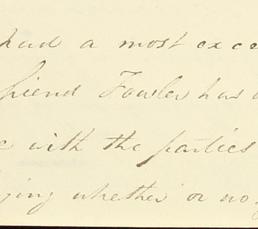 had a most exce
friend Fowler has
with the parties
ing whether or no